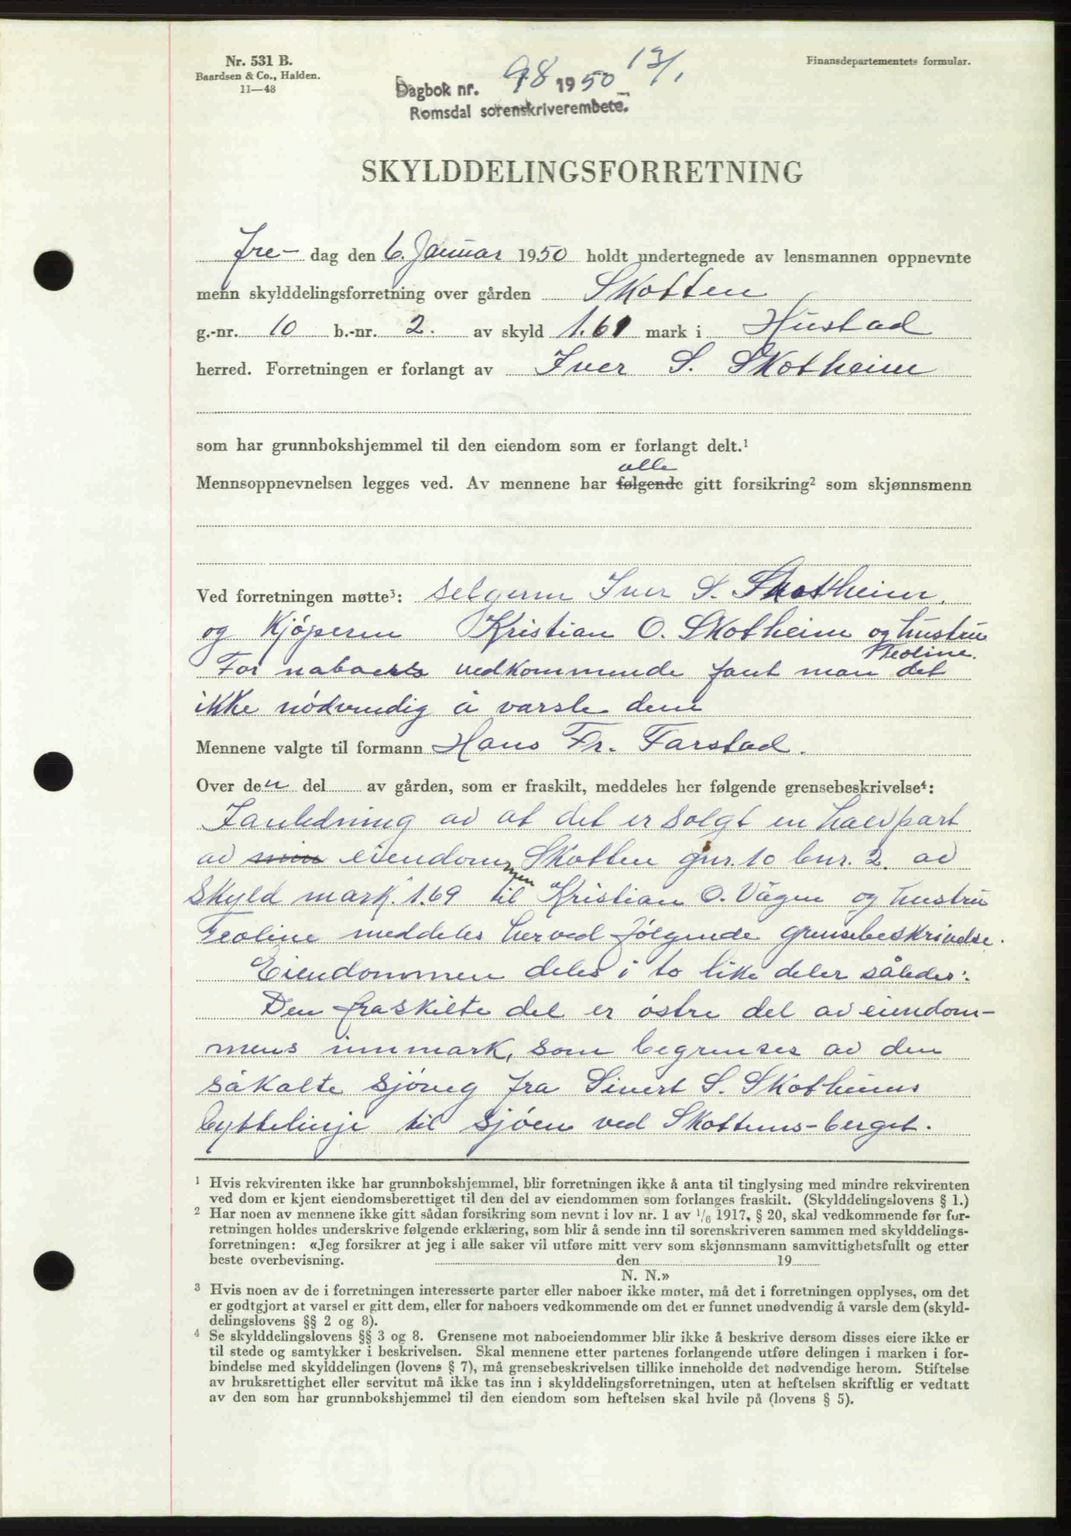 Nr. 531 B.
Baardsen & Co., Halden.
11—48
Finansdepartementets formular.
Dagbok nr. 98 1950 13/1
Romsdal sorenskriverembete.
SKYLDDELINGSFORRETNING
Fre- dag den 6. Januar 1950 holdt undertegnede av lensmannen oppnevnte
menn skylddelingsforretning over gården Skotten
g.-nr. 10 b.-nr. 2. av skyld 1.69 mark i Hustad
herred. Forretningen er forlangt av Iver S. Skotheim
som har grunnbokshjemmel til den eiendom som er forlangt delt.¹
alle
Mennsoppnevnelsen legges ved. Av mennene har følgende gitt forsikring² som skjønnsmenn
Ved forretningen møtte³: selgeren Iver S. Skotheim,
og Kjøperen Kristian O. Skotheim og hustru
Teoline.
For naboers vedkommende fant man det
ikke nødvendig å varsle dem
Mennene valgte til formann Hans Fr. Farstad.
Over den del av gården, som er fraskilt, meddeles her følgende grensebeskrivelse⁴:
I anledning av at det er solgt en halvpart
av min eiendommen Skotten gnr. 10 bnr. 2. av
Skyld mark. 1.69 til Kristian O. Vågen og hustru
Teoline meddeles herved følgende grensebeskrivelse.
Eiendommen deles i to like deler således:
Den fraskilte del er østre del av eiendom-
mens innmark, som begrenses av den
såkalte sjøveg fra Sivert S. Skotheims
byttelinje til sjøen ved Skottens-berget.
¹ Hvis rekvirenten ikke har grunnbokshjemmel, blir forretningen ikke å anta til tinglysing med mindre rekvirenten
ved dom er kjent eiendomsberettiget til den del av eiendommen som forlanges fraskilt. (Skylddelingslovens § 1.)
² Har noen av mennene ikke gitt sådan forsikring som nevnt i lov nr. 1 av ¹/₆ 1917, § 20, skal vedkommende før for-
retningen holdes underskrive følgende erklæring, som blir å sende inn til sorenskriveren sammen med skylddelings-
forretningen: «Jeg forsikrer at jeg i alle saker vil utføre mitt verv som skjønnsmann samvittighetsfullt og etter
beste overbevisning. den 19
N. N.»
³ Hvis noen av de i forretningen interesserte parter eller naboer ikke møter, må det i forretningen opplyses, om det
er godtgjort at varsel er gitt dem, eller for naboers vedkommende om det er funnet unødvendig å varsle dem (skyld-
delingslovens §§ 2 og 8).
⁴ Se skylddelingslovens §§ 3 og 8. Grensene mot naboeiendommer blir ikke å beskrive dersom disses eiere ikke er
til stede og samtykker i beskrivelsen. Skal mennene etter partenes forlangende utføre delingen i marken i for-
bindelse med skylddelingen (lovens § 7), må grensebeskrivelsen tillike inneholde det nødvendige herom. Stiftelse
av bruksrettighet eller servitut må ikke tas inn i skylddelingsforretningen, uten at heftelsen skriftlig er vedtatt
av den som har grunnbokshjemmel til den eiendom som heftelsen skal hvile på (lovens § 5).